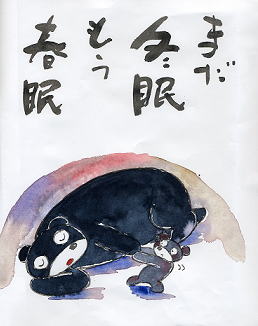 まだ
冬眠
もう
春眠